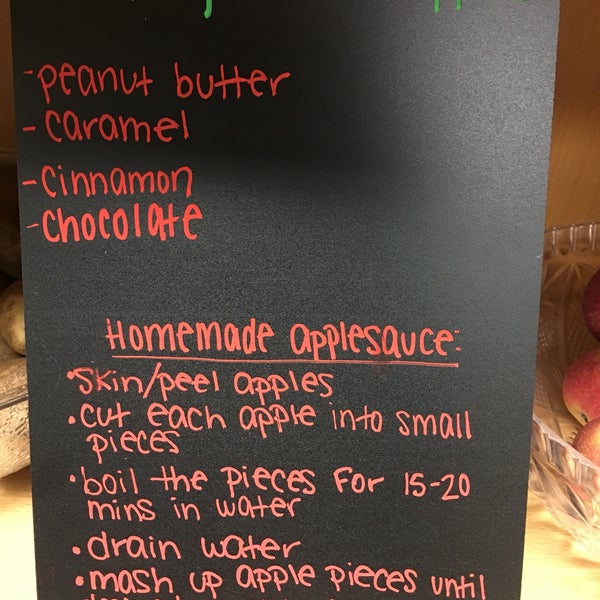 -peanut butter
-caramel
-cinnamon
-chocolate
Homemade applesauce:
•Skin/peel apples
•cut each apple into small
pieces
•boil the pieces for 15-20
mins in water
•drain water
•mash up apple pieces until